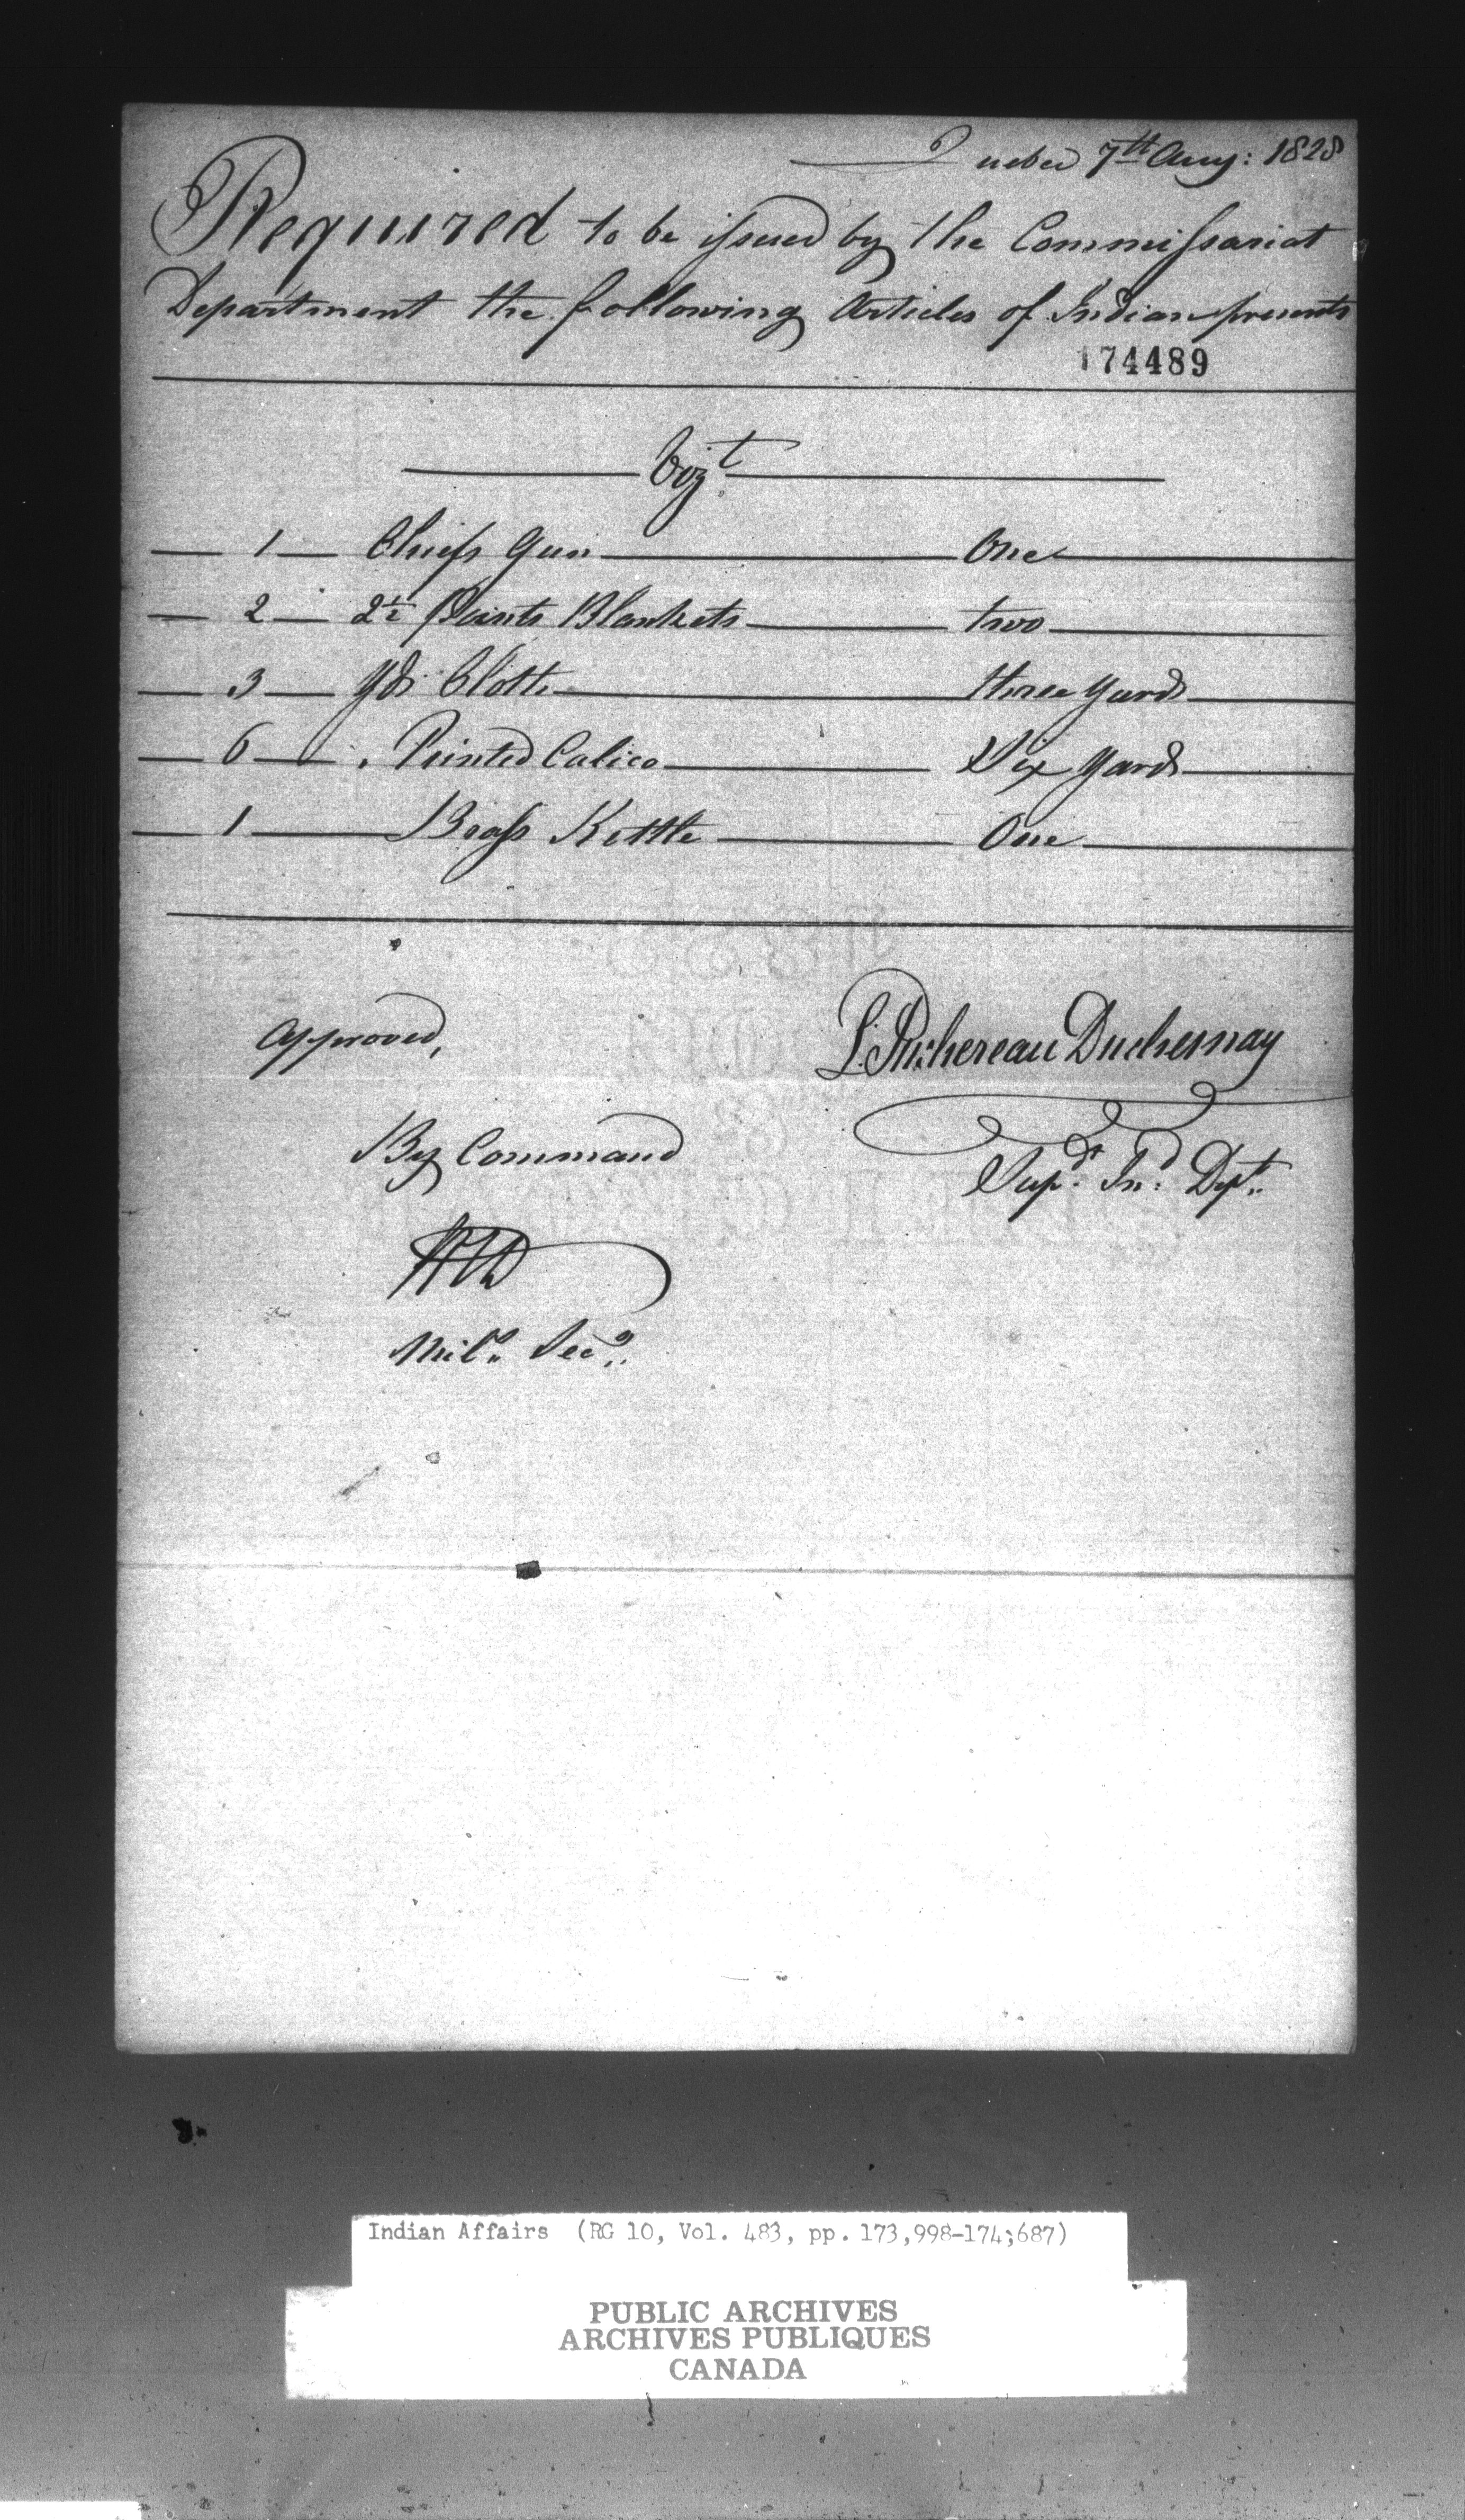 Quebec 7th Aug: 1828
Required to be issued by the Commissariat
Department the following Articles of Indian presents
174489
Vizt.
1 Chiefs Gun One
2 2½ Points Blankets two
3 Yds Cloth three Yards
6 " Printed Calico Six Yards
1 Brass Kettle One
Approved,
L. Juchereau Duchesnay
By Command
Supdt. Ind. Dept.
Mily. Secy.
Indian Affairs (RG 10, Vol. 483, pp. 173,998-174;687)
PUBLIC ARCHIVES
ARCHIVES PUBLIQUES
CANADA